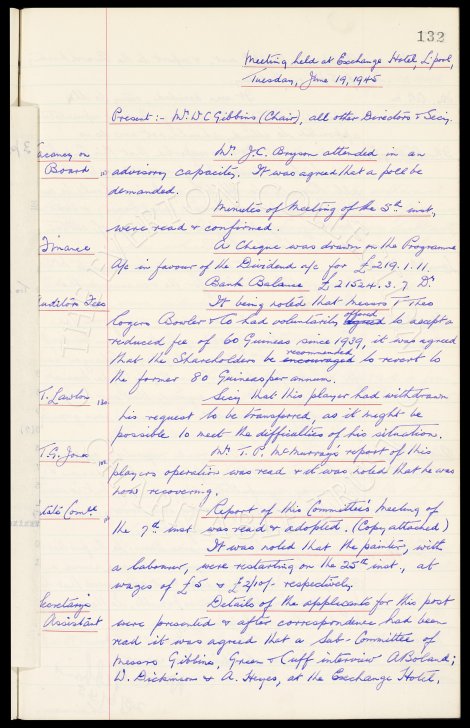 132
Meeting held at Exchange Hotel, L'pool,
Tuesday, June 19, 1945
Present :- Mr W C Gibbins (Chair), all other Directors & Secy.
Vacancy on Mr. J.C. Bryson attended in an
Board advisory capacity. It was agreed that a poll be
demanded.
Minutes of Meeting of the 5th inst,
were read & confirmed.
Finance A Cheque was drawn on the Programme
A/c in favour of the Dividend a/c for £219. 1. 11.
Bank Balance £21524. 3. 7 Dr
Auditors Fees It being noted that Messrs F Theo
Rogers Bowler & Co had voluntarily offered agreed to accept a
reduced fee of 60 Guineas since 1939, it was agreed
that the Shareholders be recommended encouraged to revert to
the former 80 Guineas per annum.
T. Lawton 130. Secy that this player had withdrawn
his request to be transferred, as it might be
possible to meet the difficulties of his situation.
T.G. Jones Mr T. P. McMurray's report of this
players operation was read & it was noted that he was
now recovering.
Report of this Committee's Meeting of
the 7th inst was read & adopted. (Copy attached)
It was noted that the painter, with
a labourer, were restarting on the 25th inst, at
wages of £5 & £2/10/- respectively.
Secretary's Details of the applicants for this post
Assistant were presented & after correspondence had been
read it was agreed that a Sub-Committee of
Messrs Gibbins, Green & Cuff interview A Boland;
W. Dickinson & A. Heyes, at the Exchange Hotel,